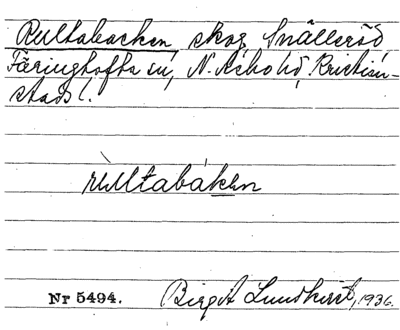 Rultabacken, skog, Snälleröd,
Färingtofta sn, N. Åsbo hd, Kristian-
stads l.
rultabákən
Nr 5494. Birgit Lundkvist, 1936.